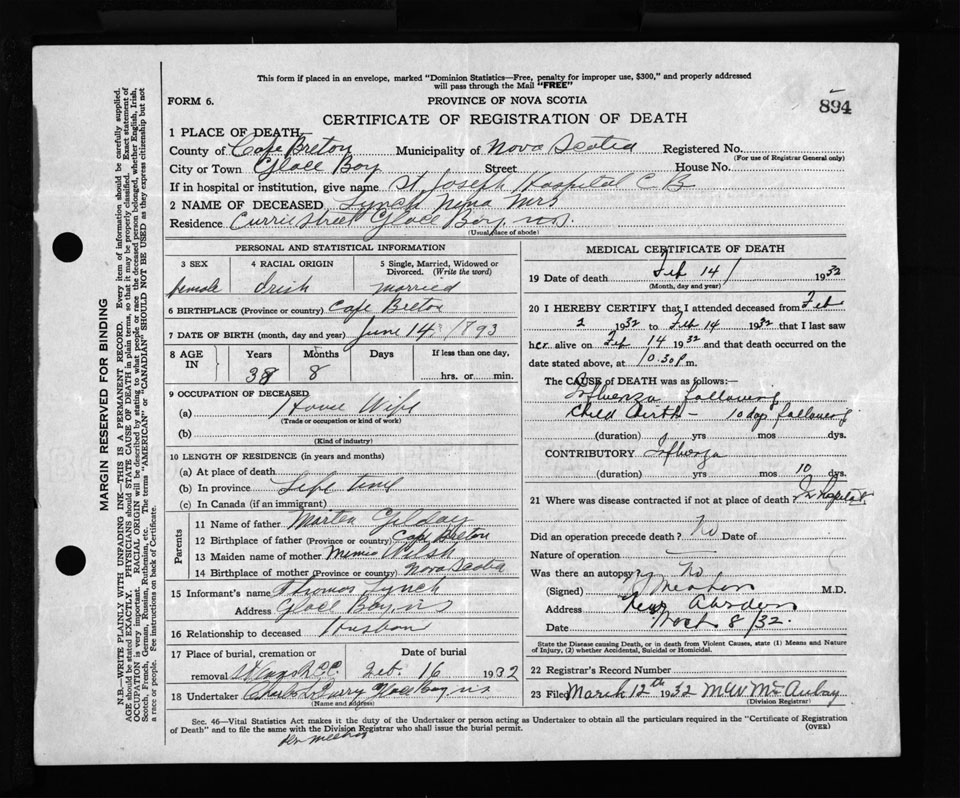 This form if placed in an envelope, marked "Dominion Statistics—Free, penalty for improper use, $300," and properly addressed
will pass through the Mail "FREE"
FORM 6. PROVINCE OF NOVA SCOTIA 894
CERTIFICATE OF REGISTRATION OF DEATH
1 PLACE OF DEATH
County of Cape Breton Municipality of Nova Scotia Registered No.
(For use of Registrar General only)
City or Town Glace Bay Street House No.
If in hospital or institution, give name St. Joseph Hospital C B
2 NAME OF DECEASED Lynch Nina Mrs
Residence Currie Street Glace Bay, N.S.
(Usual place of abode)
PERSONAL AND STATISTICAL INFORMATION
3 SEX 4 RACIAL ORIGIN 5 Single, Married, Widowed or
Divorced. (Write the word)
female Irish married
6 BIRTHPLACE (Province or country) Cape Breton
7 DATE OF BIRTH (month, day and year) June 14 1893
8 AGE IN Years Months Days If less than one day,
38 8 hrs. or min.
9 OCCUPATION OF DECEASED
(a) House Wife
(Trade or occupation or kind of work)
(b)
(Kind of industry)
10 LENGTH OF RESIDENCE (in years and months)
(a) At place of death
(b) In province Life time
(c) In Canada (if an immigrant)
Parents
11 Name of father Marten Gilday
12 Birthplace of father (Province or country) Cape Breton
13 Maiden name of mother Welsh
14 Birthplace of mother (Province or country) Nova Scotia
15 Informant's name Thomas Lynch
Address Glace Bay, N.S
16 Relationship to deceased Husban
17 Place of burial, cremation or Date of burial
removal R.C.C. Feb. 16 1932
18 Undertaker Charles Glace Bay N.S
(Name and address)
MEDICAL CERTIFICATE OF DEATH
19 Date of death Feb 14 1932
(Month, day and year)
20 I HEREBY CERTIFY that I attended deceased from Feb
2 1932 to Feb 14 1932 that I last saw
her alive on Feb 14 1932 and that death occurred on the
date stated above, at 10.30 p m.
The CAUSE of DEATH was as follows:—
Influenza following
Child Birth — 10 day following
(duration) yrs mos dys.
CONTRIBUTORY Influenza
(duration) yrs mos 10 dys.
21 Where was disease contracted if not at place of death? In Hospital
Did an operation precede death? No Date of
Nature of operation
Was there an autopsy? No
(Signed) M.D.
Address New Aberdeen
Date March 8/32.
State the Disease causing Death, or in death from Violent Causes, state (1) Means and Nature
of Injury, (2) whether Accidental, Suicidal or Homicidal.
22 Registrar's Record Number
23 Filed March 12th 1932 M.W. McAulay
(Division Registrar)
Sec. 46—Vital Statistics Act makes it the duty of the Undertaker or person acting as Undertaker to obtain all the particulars required in the "Certificate of Registration
of Death" and to file the same with the Division Registrar who shall issue the burial permit. (OVER)
MARGIN RESERVED FOR BINDING
N.B.—WRITE PLAINLY WITH UNFADING INK—THIS IS A PERMANENT RECORD. Every item of information should be carefully supplied.
AGE should be stated EXACTLY. PHYSICIANS should STATE CAUSE OF DEATH in plain terms, so that it may be properly classified. Exact statement of
OCCUPATION is very important. RACIAL ORIGIN will be described by stating to what people or race the deceased person belonged, whether English, Irish,
Scotch, French, German, Russian, Ruthenian, etc. The terms "AMERICAN" or "CANADIAN" SHOULD NOT BE USED as they express citizenship but not
a race or people. See instructions on back of Certificate.